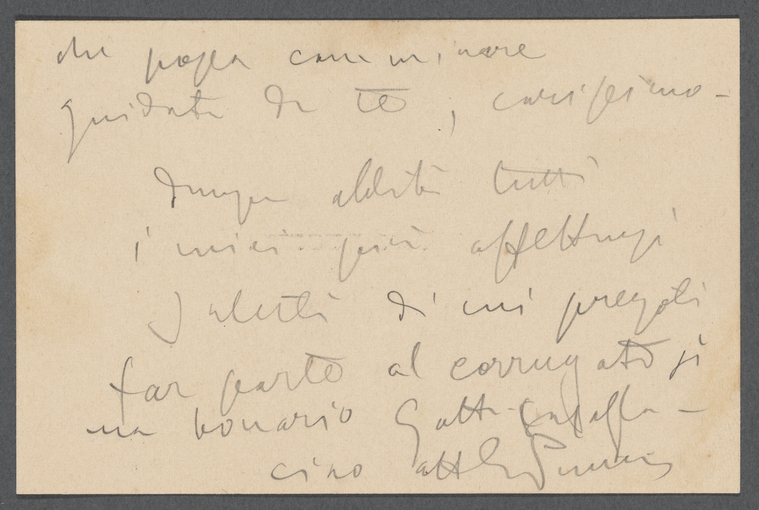 che possa camminare
guidata da te, carissimo -
Dunque abbiti tutti
i miei più affettuosi
saluti di cui pregoti
far parte al corrugato si
ma bonario Gatti-Casazza -
ciao